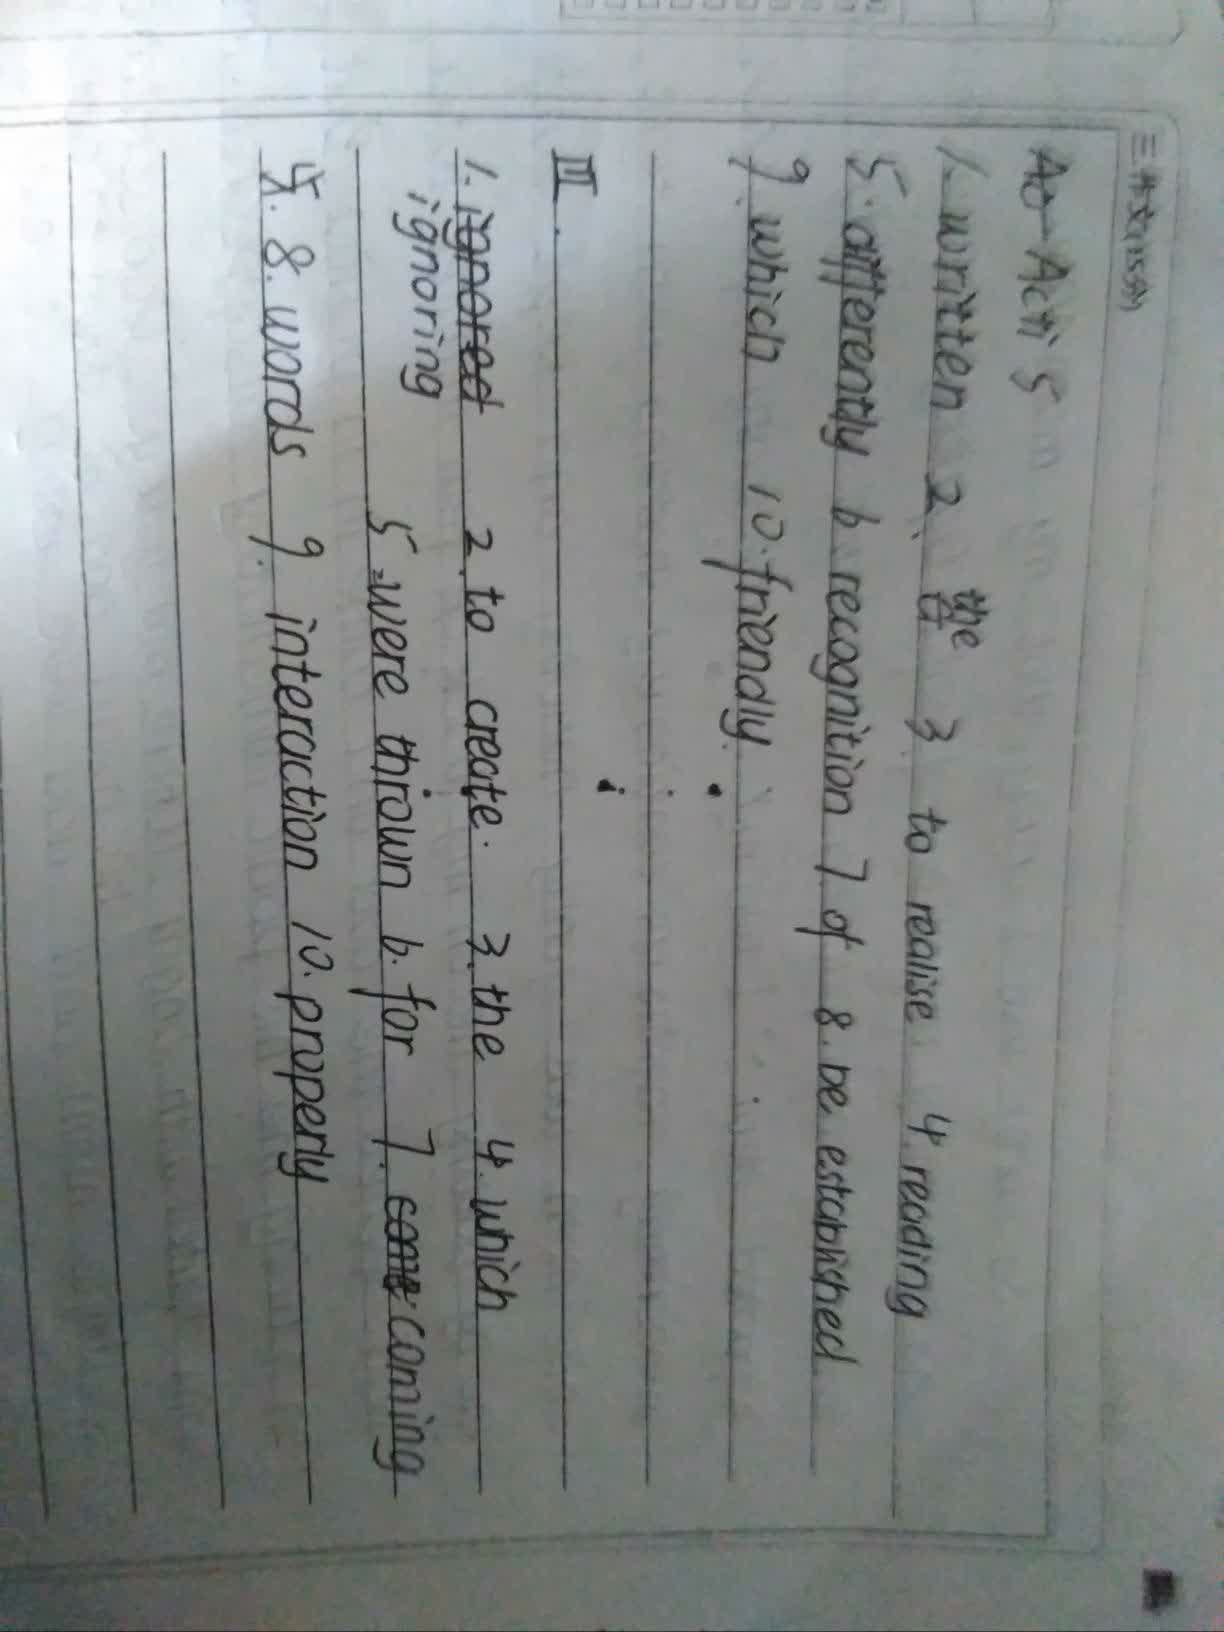 三作文(15分)
Acti 5
1. written 2. the 3. to realise 4. reading
5. differently 6 recognition 7 of 8. be established
9. which 10. friendly.
III.
1. ignored 2. to create. 3. the 4. which
ignoring
5. were thrown 6. for 7. come. coming
8. words 9. interaction 10. properly